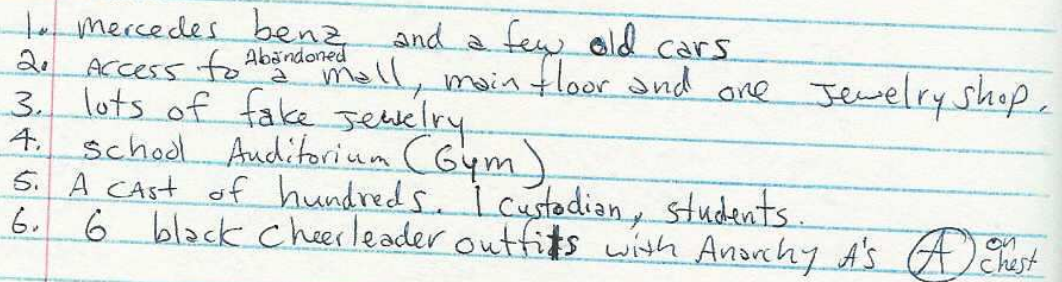 1. mercedes benz and a few old cars
2. Access to a Abandoned mall, main floor and one Jewelry shop.
3. lots of fake Jewelry
4. school Auditorium (Gym)
5. A cAst of hundreds. 1 custodian, students.
6. 6 black cheerleader outfits with Anarchy A's (A) on chest